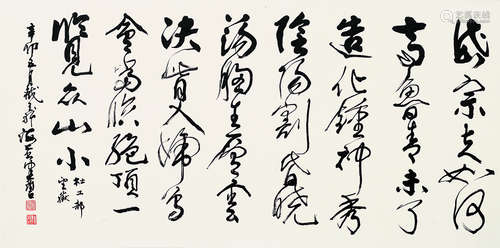 岱宗夫如何
齊魯青未了
造化鍾神秀
陰陽割昏曉
蕩胸生層雲
決眥入歸鳥
會當凌絕頂一
覽众山小
杜工部
望嶽
辛卯五月